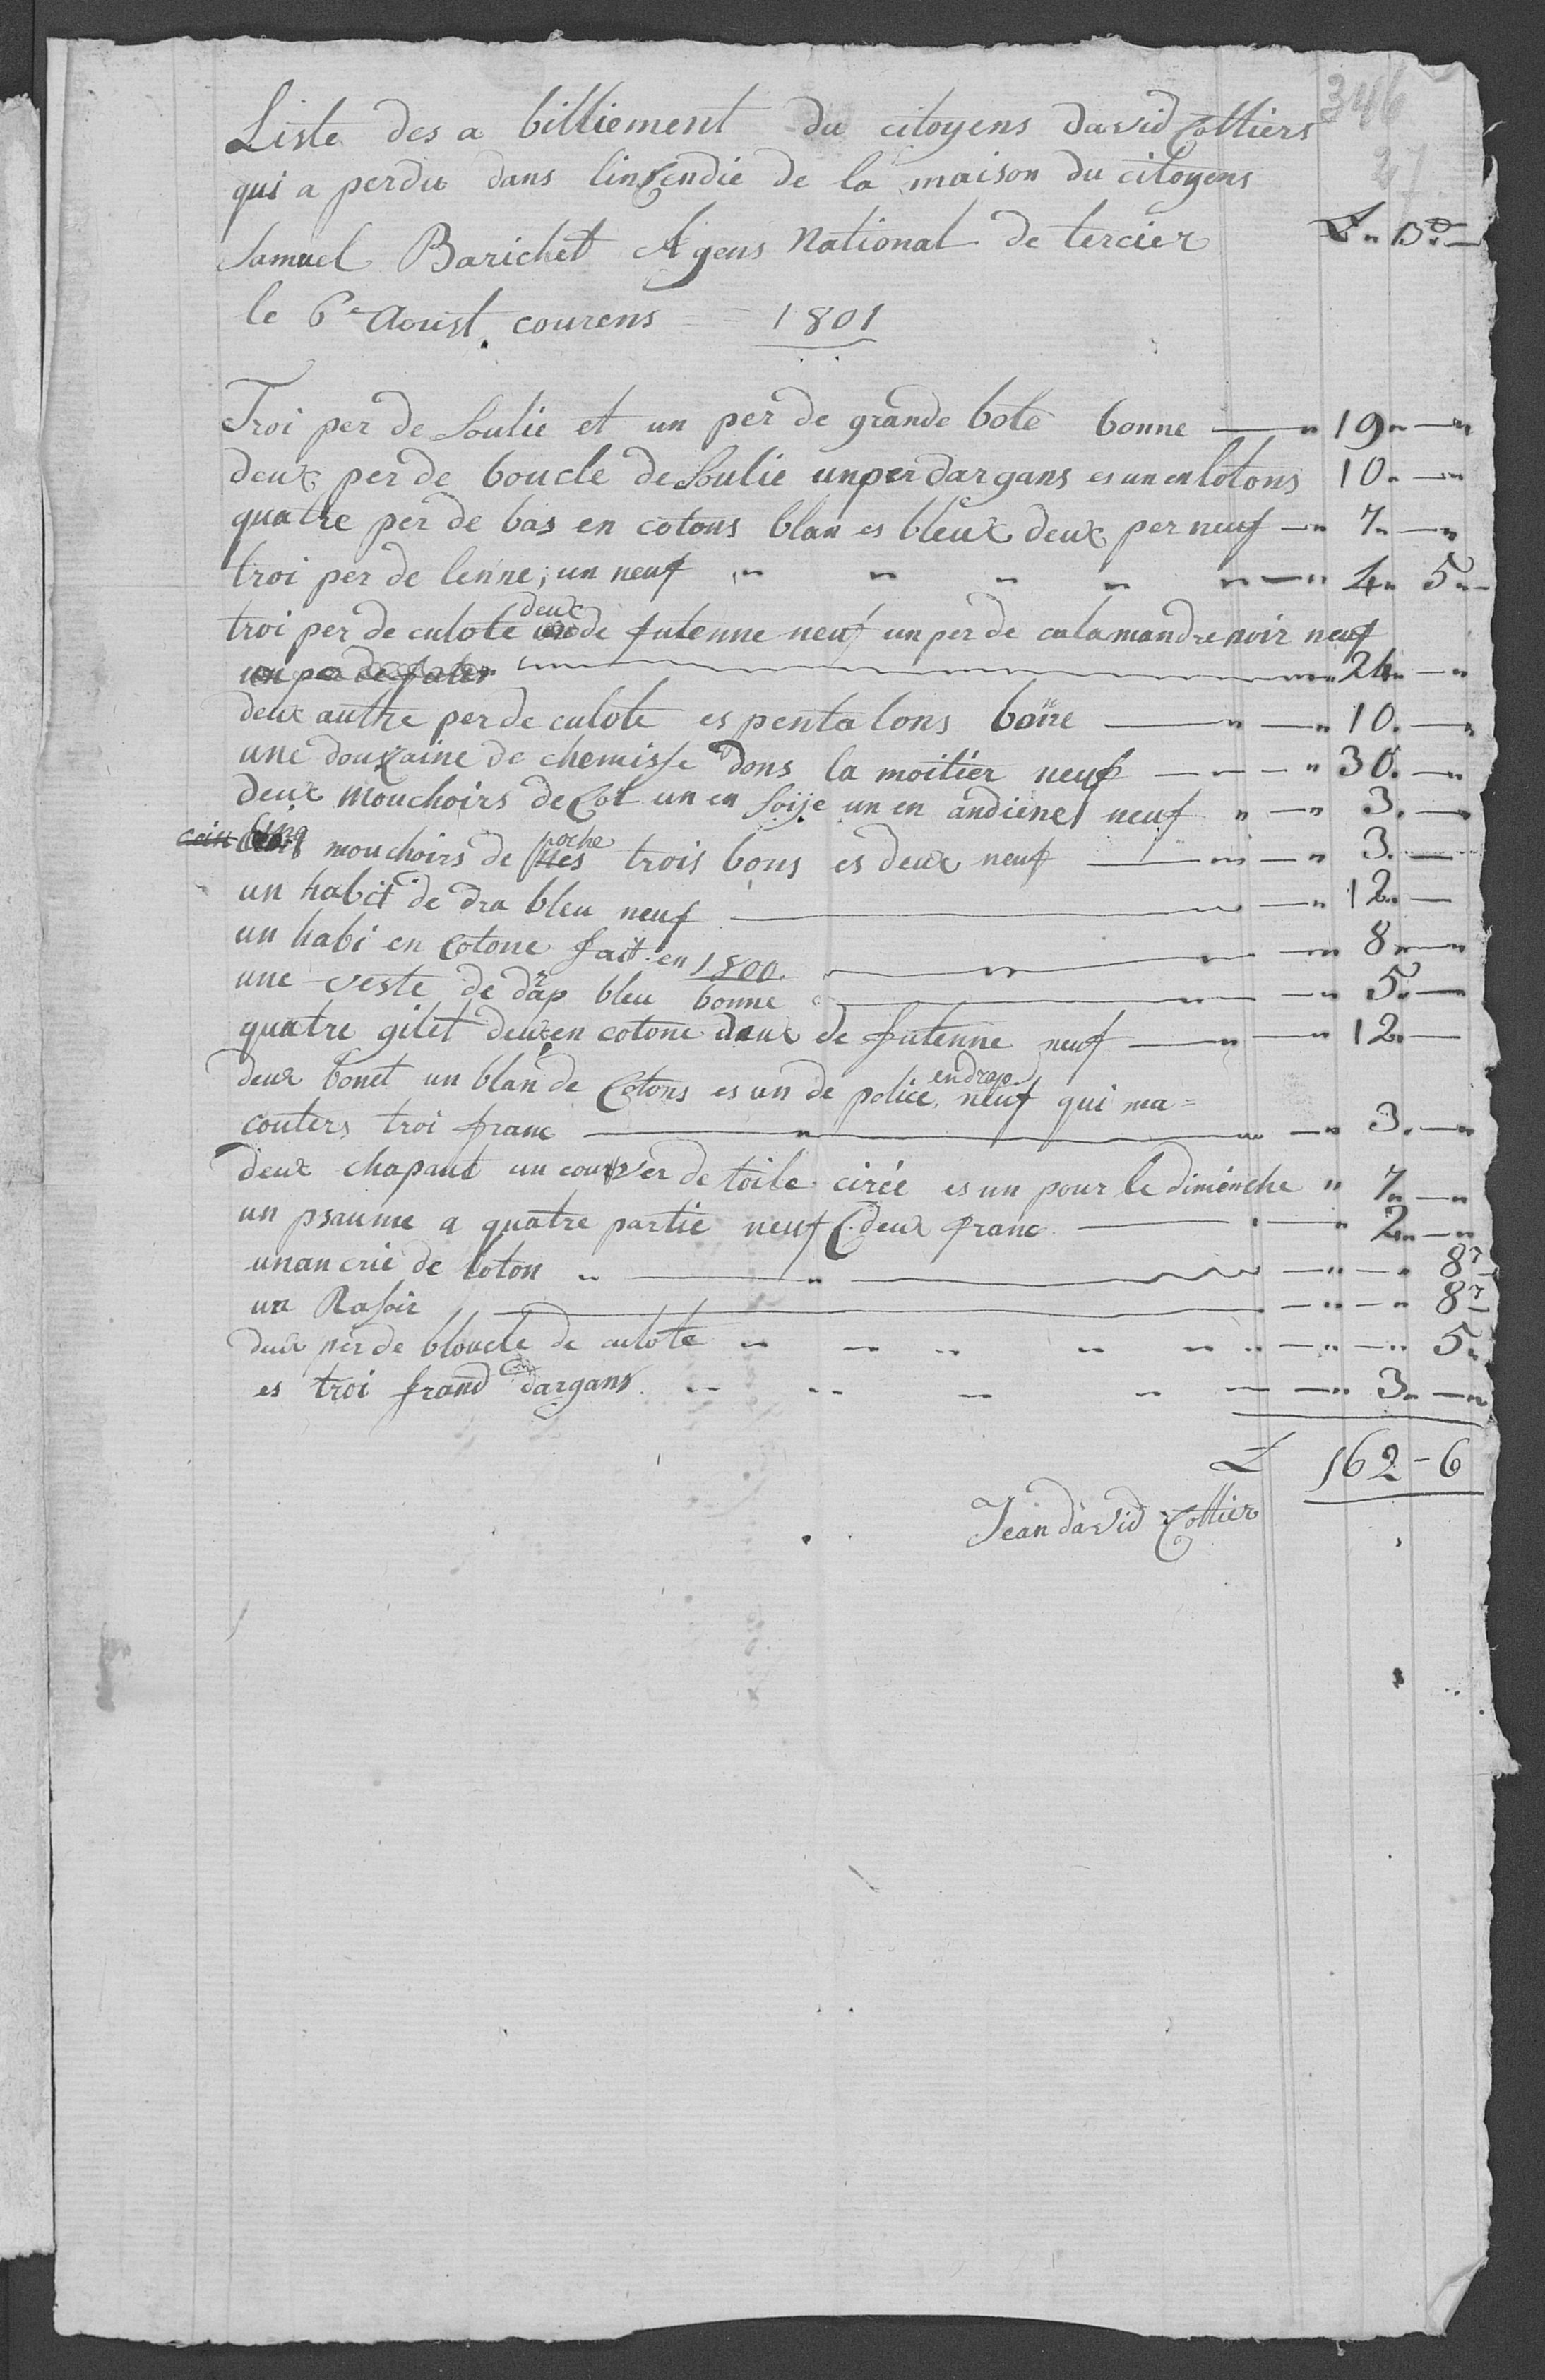 346
27
Liste des a billiement du citoyens david Cottiers
qui a perdu dans linscendie de la maison du citoyens
Samuel Barichet Agens National de tercier
L " Bz —
le 6e Aoust courens = 1801
Troi per de Soulie et un per de grande bote bonne — " 19 " — "
deux per de boucle de Soulie un per dargans es un en lotons 10 " — "
quatre per de bas en cotons blan es bleux deux per neuf — " 7 " — "
troi per de lenne, un neuf " " " " " — " 4 " 5 " —
troi per de culote deux de futenne neuf un per de calamandre noir neuf
un per de futen " 24 " — "
deux autre per de culote es pentalons bone — " — " 10 . — "
une douzaine de chemisse dons la moitiér neuf — — — " 30 . — "
deux mouchoirs de Col un en Soije un en andiene neuf " — " 3 . — "
cein cinq mouchoirs de poche trois bons es deux neuf — " — " 3 . —
un habit de dra bleu neuf — — " 12 " —
un habi en Cotone fait en 1800. — " — " — " 8 " — "
une veste de drap bleu bonne — " — " 5 " —
quatre gilet deux en cotone deux de futenne neuf — " — " 12 " —
deux bonet un blan de Cotons es un de police en drap neuf qui ma =
couters troi franc — " — " — " 3 . — "
deux chapaut un couver de toile cirée es un pour le dimenche " 7 " — "
un psaume a quatre partie neuf C. deux franc — " — " 2 " — "
un ancrie de loton " — " — " — " 8 "
un Rasoir — " — " 8 "
deux per de bloucle de culote " " " " " " — " — " 5 "
es troi frand dargans " " " " — — " 3 " — "
L 162 - 6
Jean david Cottier